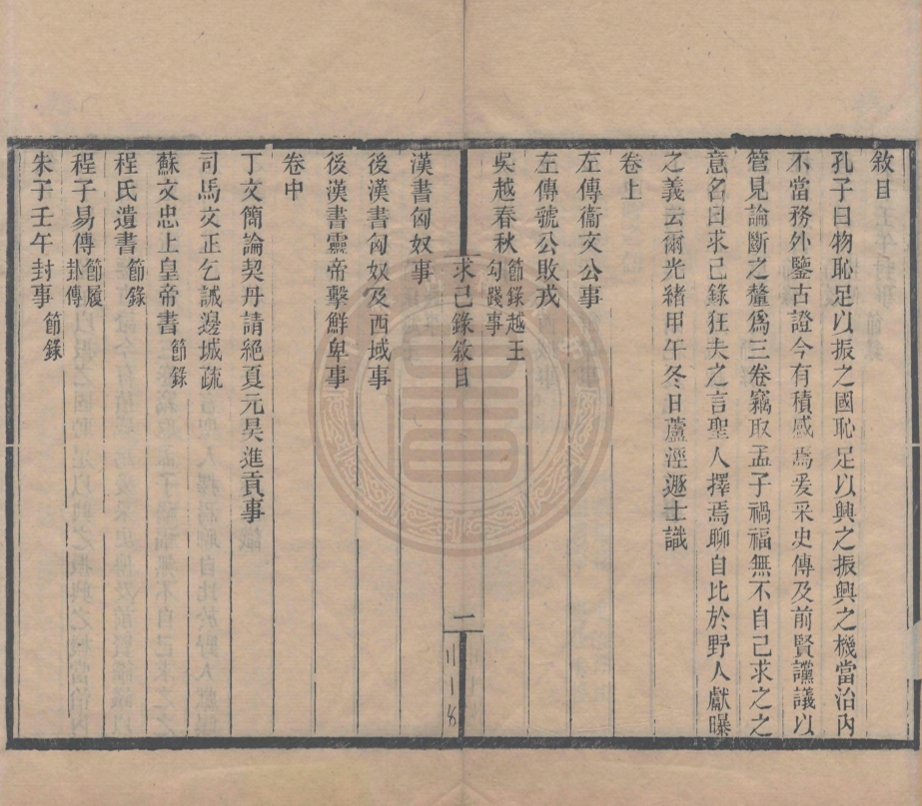 敘目
孔子曰物恥足以振之國恥足以興之振興之機當治內
不當務外鑒古證今有積感焉爰采史傳及前賢讜議以
管見論斷之釐為三卷竊取孟子禍福無不自己求之之
意名曰求己錄狂夫之言聖人擇焉聊自比於野人獻曝
之義云爾光緒甲午冬日蘆涇遯士識
卷上
左傳衞文公事
左傳虢公敗戎
吳越春秋節錄越王勾踐事
求己錄敘目
二
漢書匈奴事
後漢書匈奴及西域事
後漢書靈帝擊鮮卑事
卷中
丁文簡論契丹請絕夏元昊進貢事
司馬文正乞誡邊城疏
蘇文忠上皇帝書節錄
程氏遺書節錄
程子易傳節履卦傳
朱子壬午封事節錄